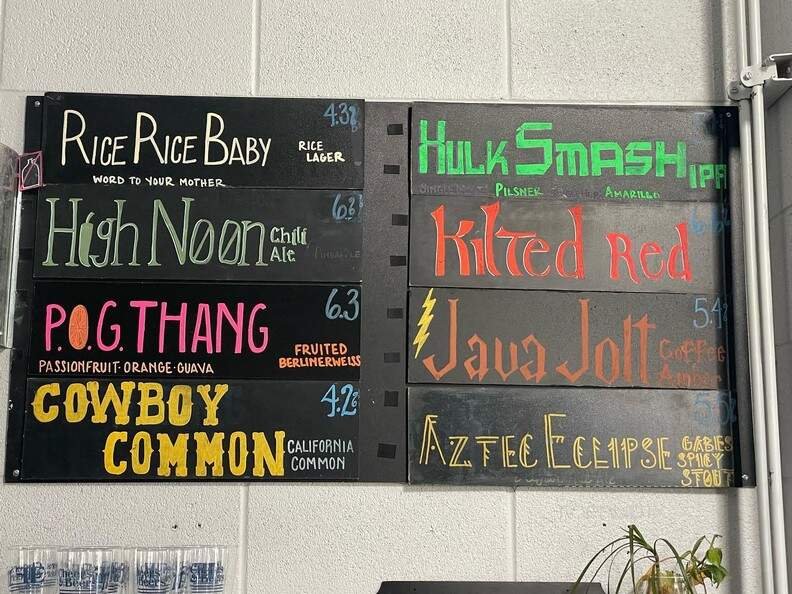 4.3%
RICE RICE BABY
RICE
LAGER
WORD TO YOUR MOTHER
High Noon
Chili
Ale
6.3
P.O.G. THANG
FRUITED
BERLINERWEISS
PASSIONFRUIT·ORANGE·GUAVA
4.2%
COWBOY
COMMON
CALIFORNIA
COMMON
HULK SMASH IPA
PILSNER
AMARILLO
Kilted Red
5.4%
Java Jolt
Coffee
Amber
AZTEC ECLIPSE
GABIES
SPICY
STOUT
Cheers
& Beers